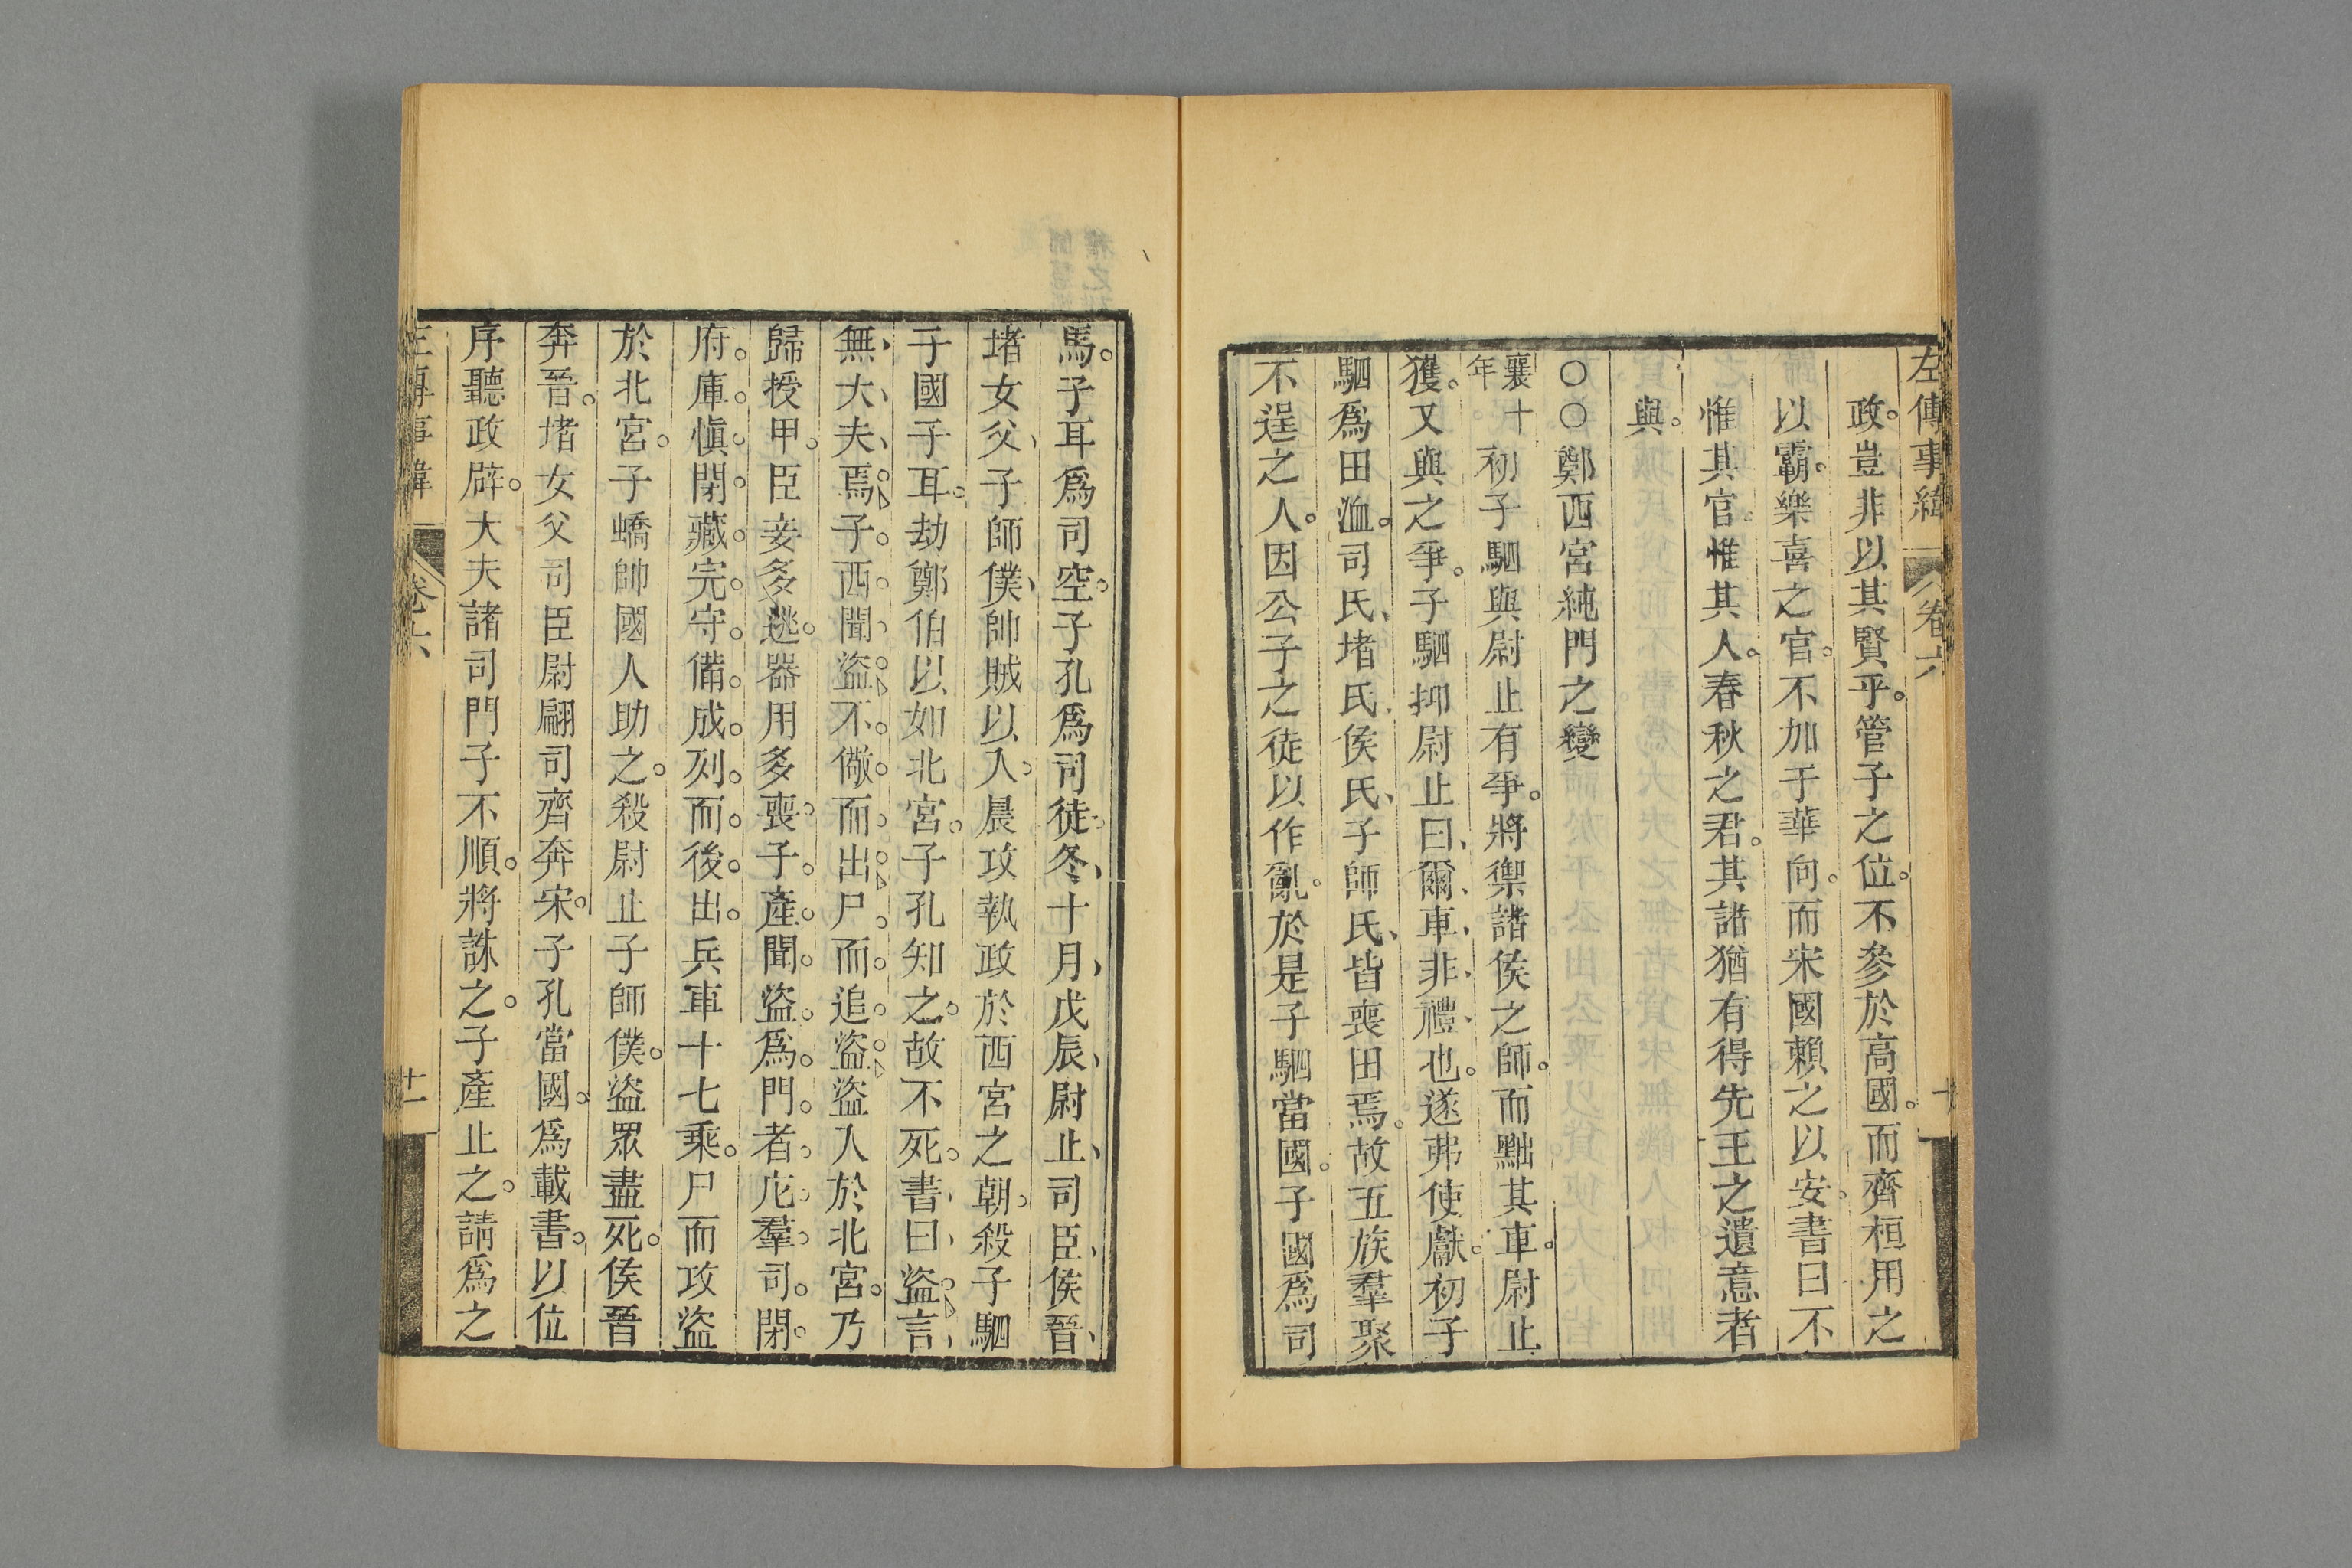 左傳事緯 卷六 十
政。豈非以其賢乎。管子之位。不參於高國。而齊桓用之
以霸。樂喜之官。不加于華向。而宋國賴之以安。書曰不
惟其官。惟其人。春秋之君。其諸猶有得先王之遺意者
與。
○○鄭西宮純門之變
襄十年 初子駟與尉止有爭。將禦諸侯之師。而黜其車。尉止
獲。又與之爭。子駟抑尉止曰、爾車、非禮、也。遂弗使獻。初子
駟爲田洫。司氏、堵氏、侯氏、子師氏、皆喪田焉。故五族羣聚
不逞之人。因公子之徒以作亂。於是子駟當國。子國爲司
馬。子耳爲司空。子孔爲司徒。冬、十月、戊辰、尉止、司臣、侯晉、
堵女父、子師僕、帥賊以入。晨攻執政於西宮之朝。殺子駟
子國子耳。劫鄭伯以如北宮。子孔知之。故不死。書曰盜言
無大夫焉。子西聞盜。不儆而出。尸而追盜。盜入於北宮。乃
歸授甲。臣妾多逃。器用多喪。子產聞盜。爲門者。庀羣司。閉
府庫。愼閉藏。完守備。成列而後出。兵車十七乘。尸而攻盜
於北宮。子蟜帥國人助之。殺尉止子師僕。盜眾盡死。侯晉
奔晉。堵女父司臣尉翩司齊奔宋。子孔當國。爲載書。以位
序聽政辟。大夫諸司門子不順。將誅之。子產止之。請爲之
左傳事緯 卷六 十一